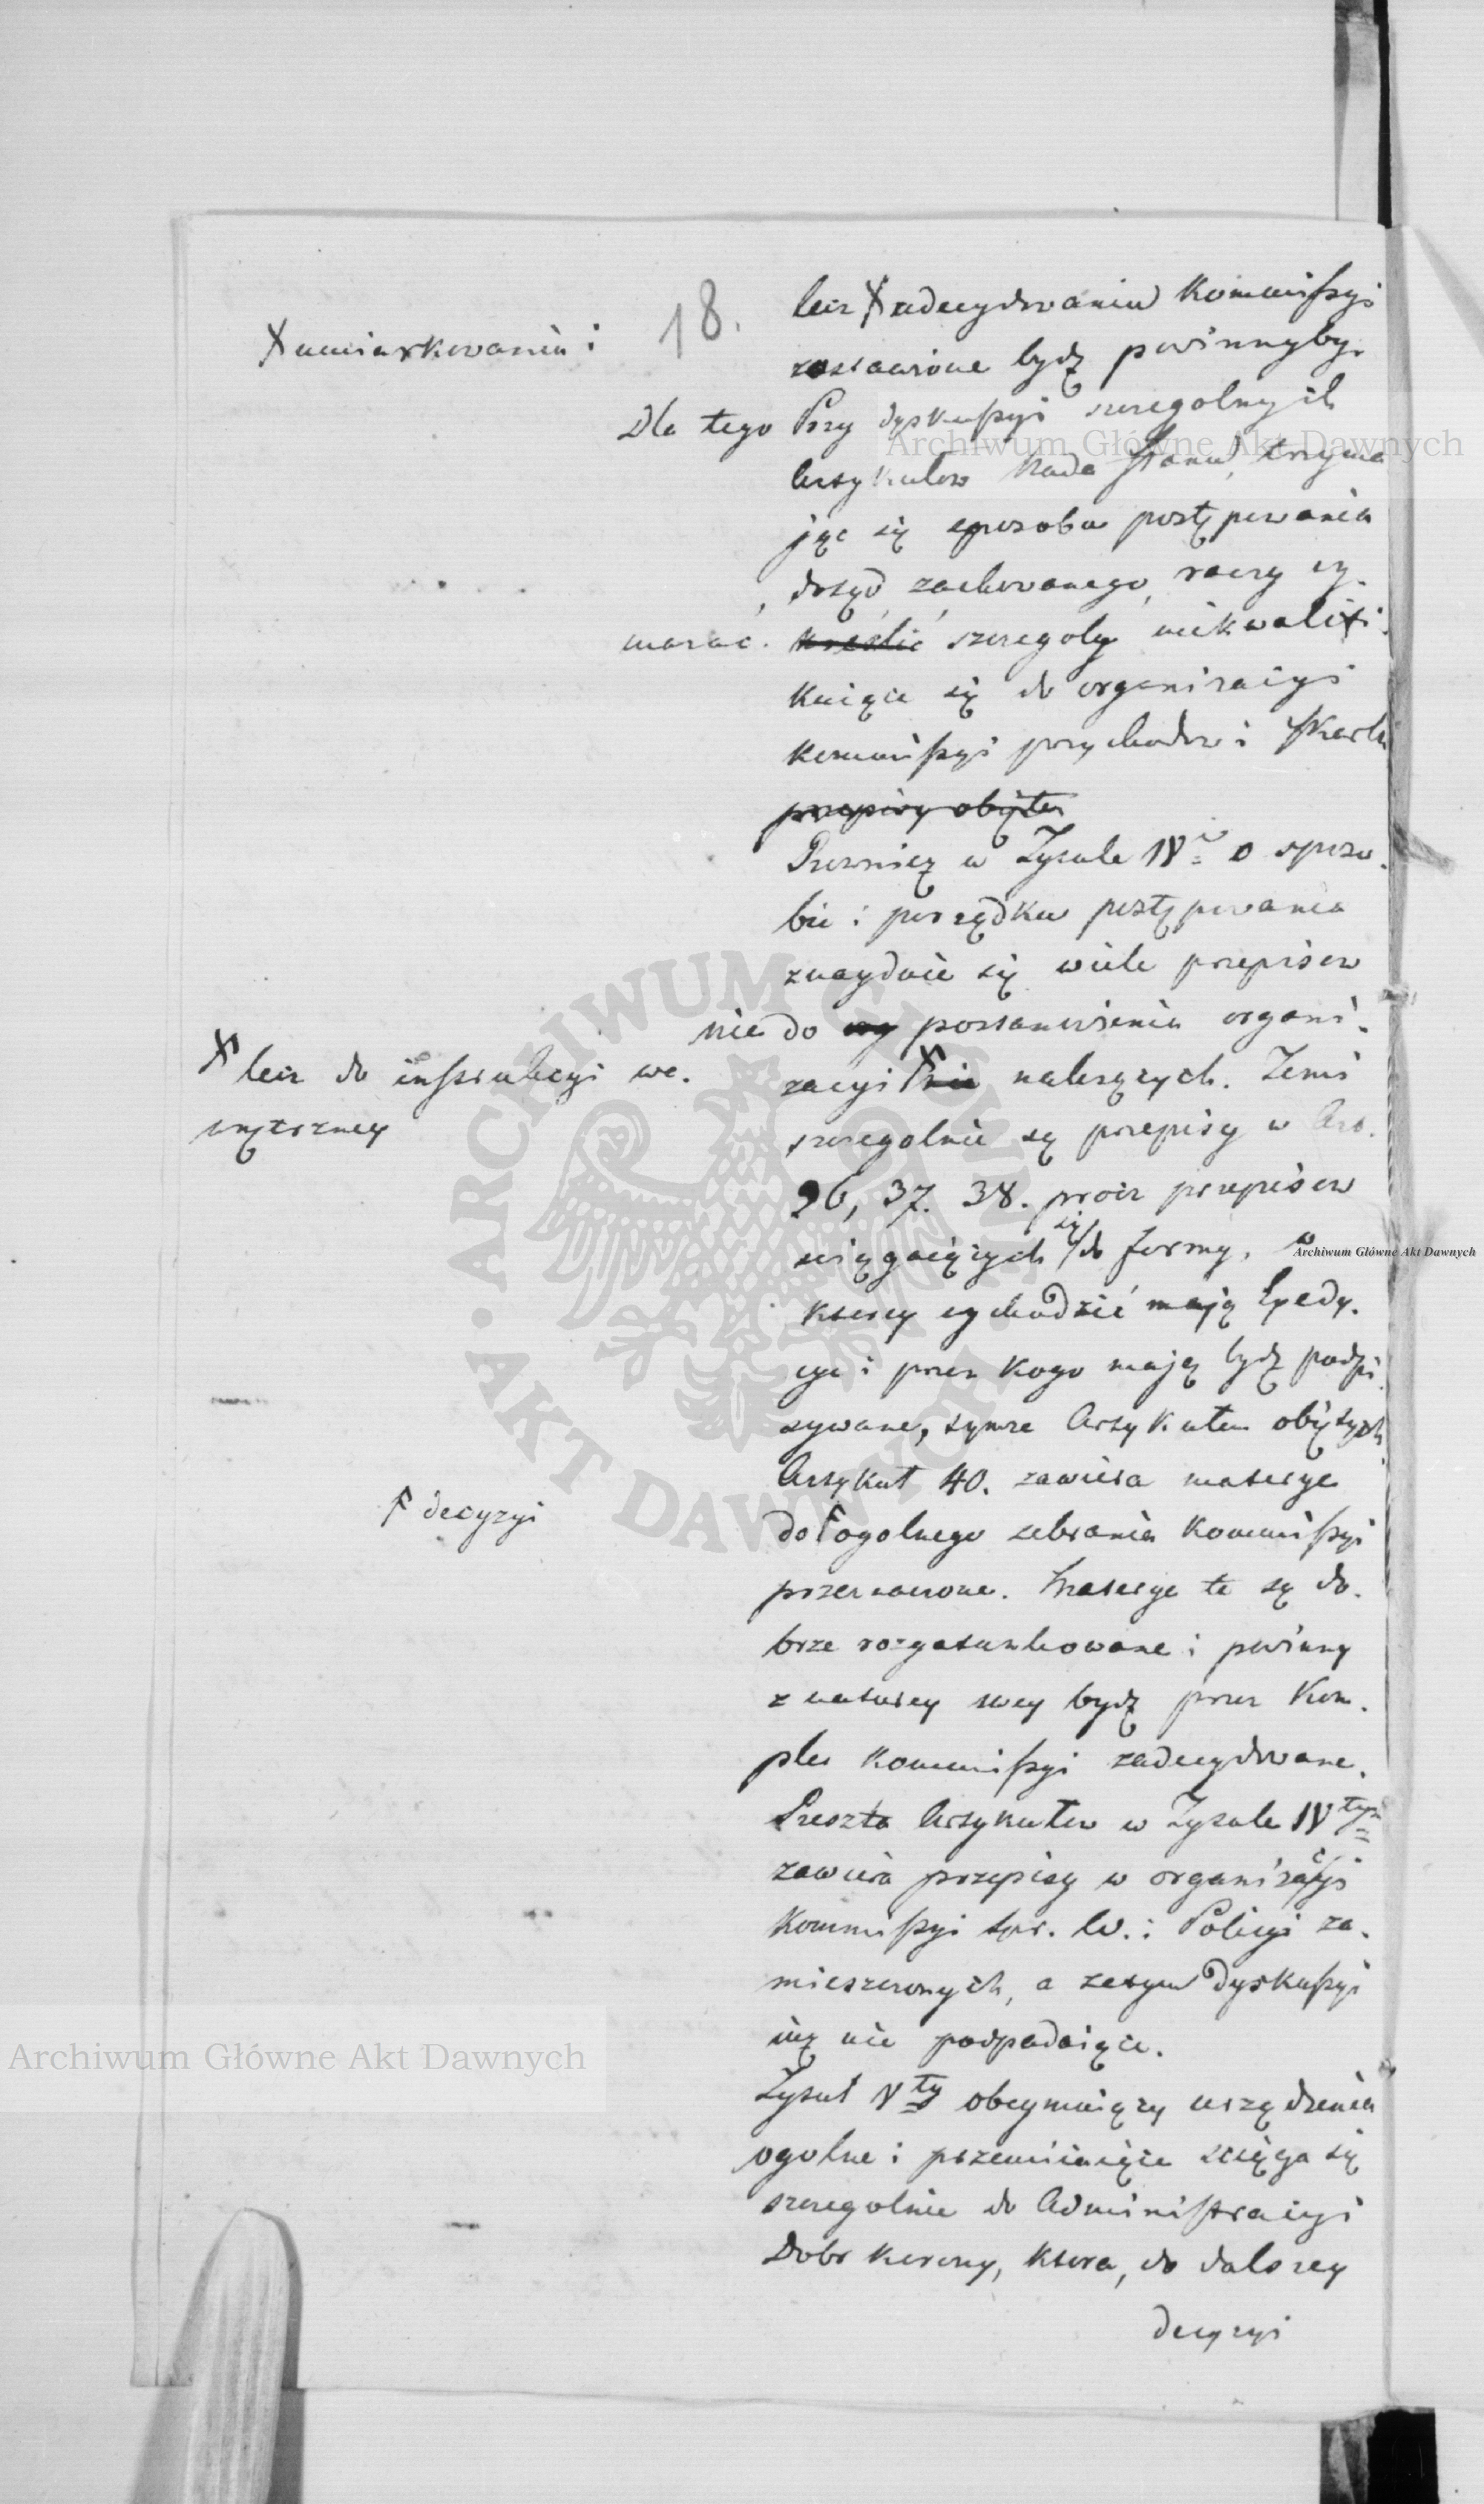 18.
lecz X zadecydowaniu Kommissyi
X umiarkowaniu i
zostawione bydź powinnyby.
Dla tego Przy dyskussyi szczegolnych
Artykułow Rada Stanu, trzyma
jąc się sposobu postępowania
dotąd zachowanego, raczy wy-
mazać. kreślić szczegoły niekwalifi-
kuiące się do organizacyi
Kommissyi przychodow i Skarbu
przepisy objęte
Rownież w Tytule IV o sposo-
bie i porządku postępowania
znayduie się wiele przepisow
nie do wy postanowienia organi-
zacyi X nie należących. Temi
X lecz do instrukcyi we-
wnętrzney
szczegolnie są przepisy w Art.
36, 37. 38. procz przepisow
sciągaiących się do formy, w
ktorey wychodzić mają Expedy-
cye i przez kogo mają bydź podpi
sywane, tymże Artykułem objętych
Artykuł 40. zawiera materye
do F ogolnego zebrania Kommissyi
F decyzyi
przeznaczone. Materye te są do-
brze rozgatunkowane i powinny
z natury swey bydź przez Kom-
plet Kommissyi zadecydowane.
Reszta Artykułow w Tytule IVtym
zawiera przepisy w organizacyi
Kommissyi Spr. W. i Policyi za-
mieszczonych, a zatym Dyskussyi
iuż nie podpadaiące.
Tytuł Vty obeymuiący urządzenia
ogolne i przemiiaiące sciąga się
szczegolnie do Administracyi
Dobr Korony, ktora, do dalszey
decyzyi
Archiwum Główne Akt Dawnych
Archiwum Główne Akt Dawnych
Archiwum Główne Akt Dawnych
ARCHIWUM GŁÓWNE
AKT DAWNYCH